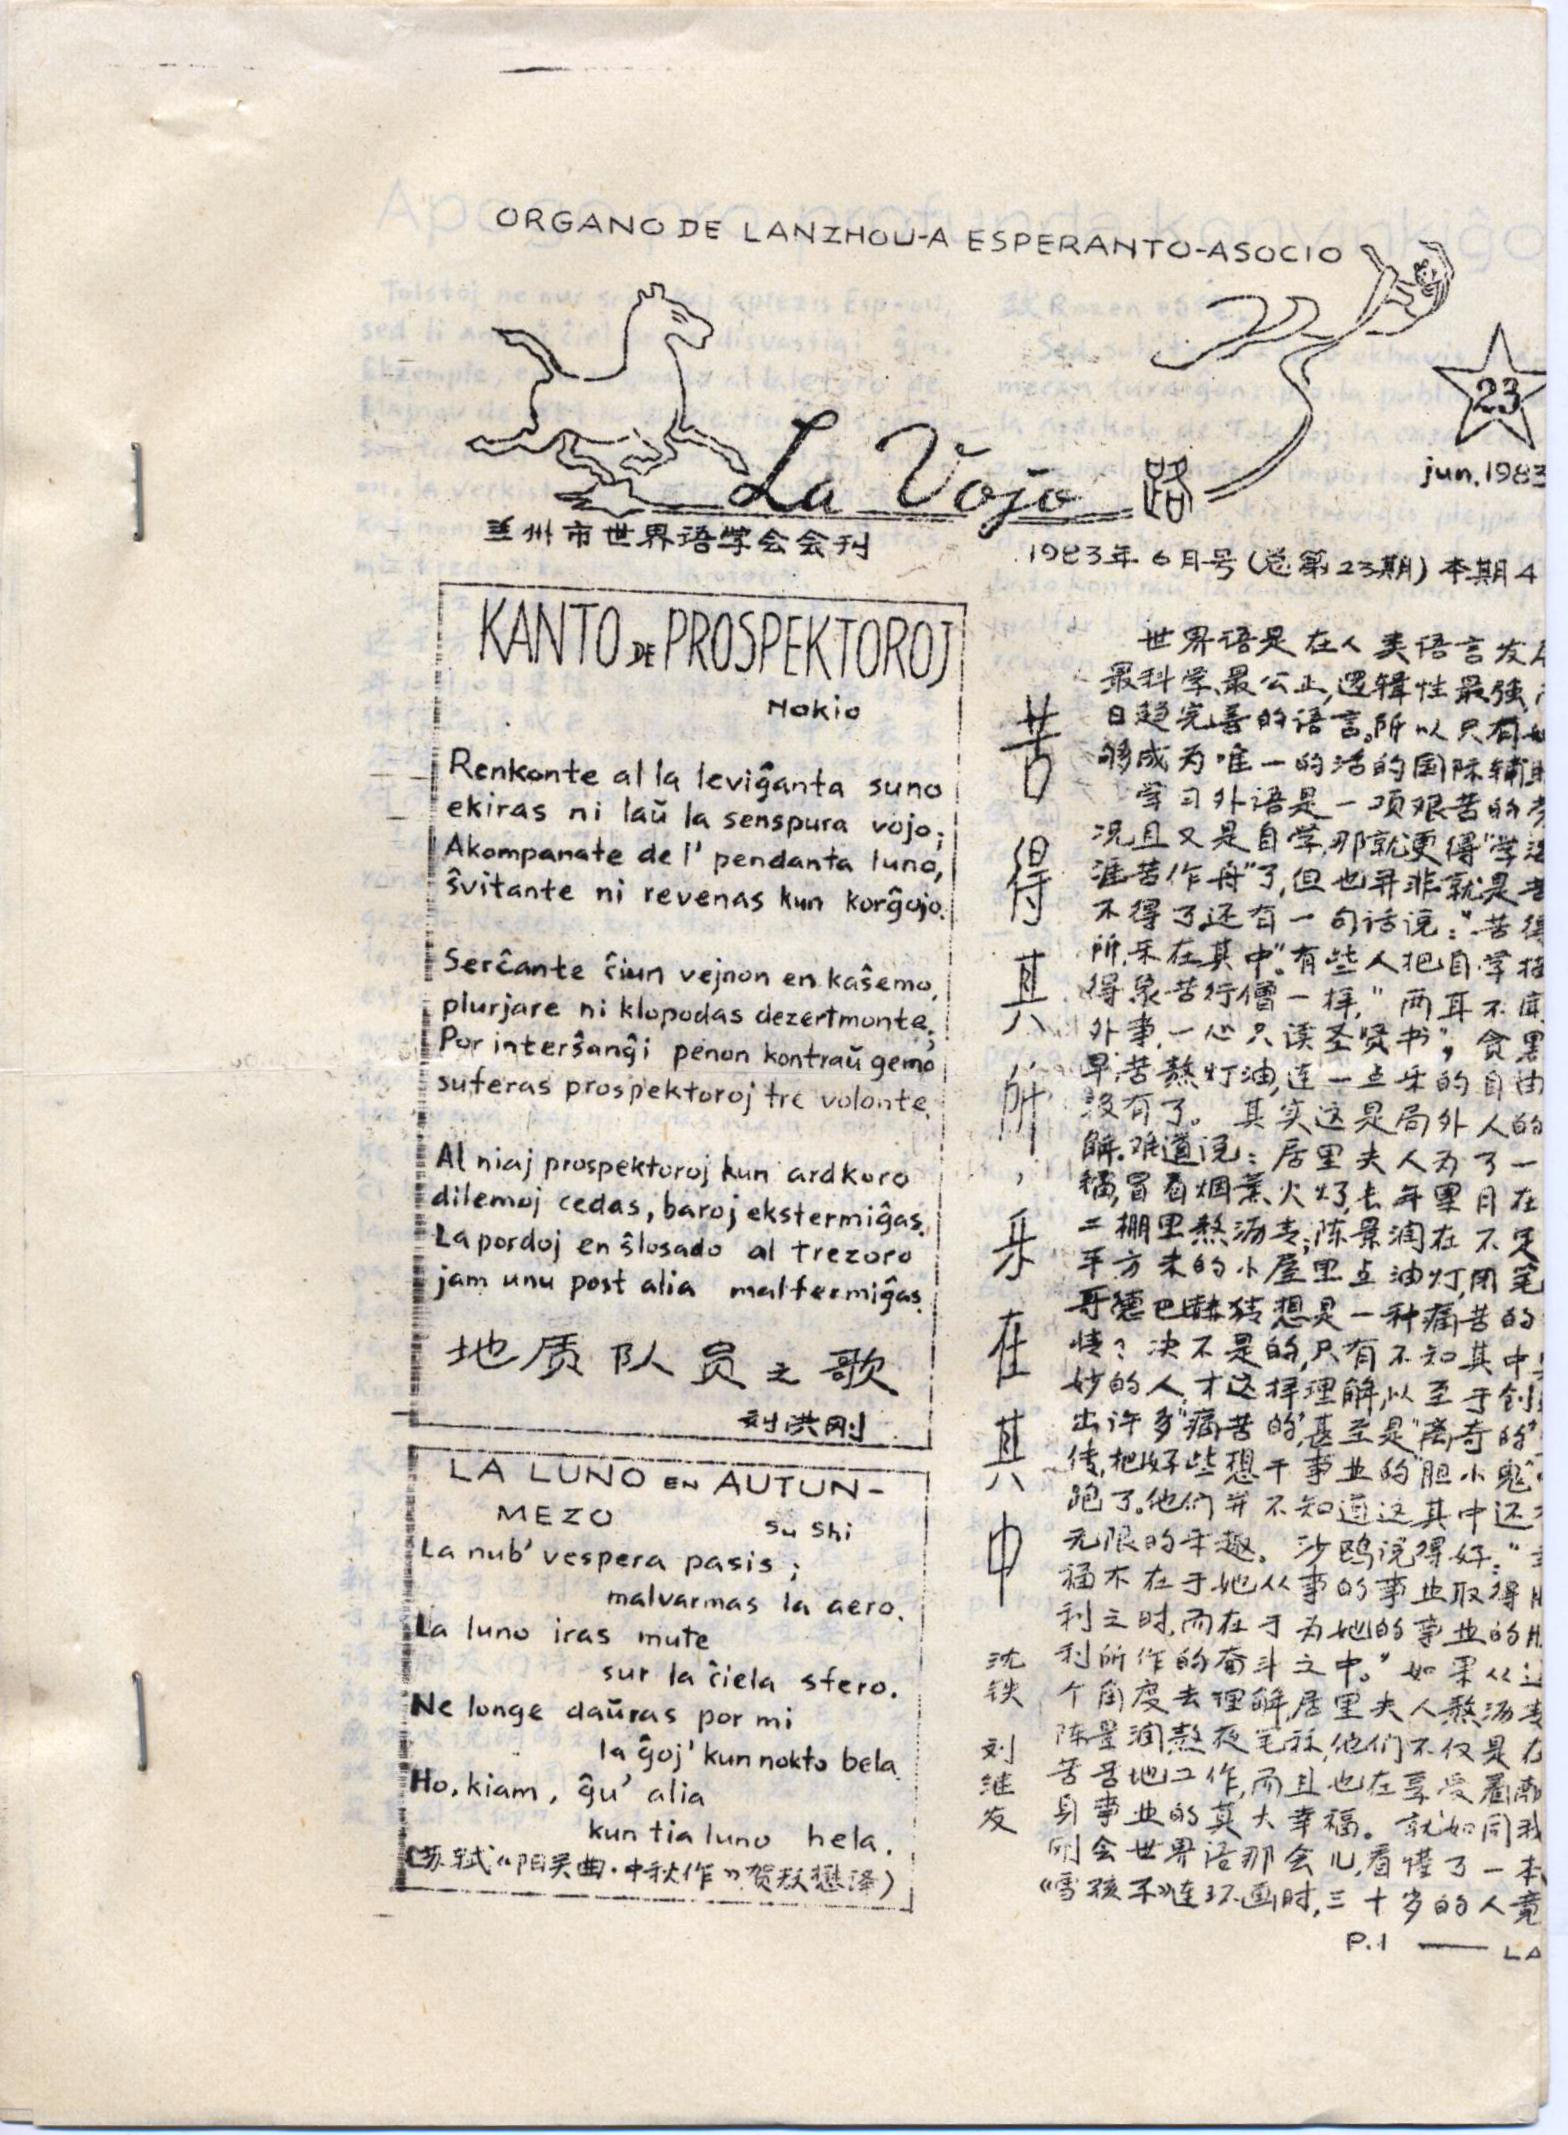 ORGANO DE LANZHOU-A ESPERANTO-ASOCIO
23
jun.1983
La Vojo 路
兰州市世界语学会会刊
1983年6月号(总第23期)本期4
KANTO DE PROSPEKTOROJ
Hokio
Renkonte al la leviĝanta suno
ekiras ni laŭ la senspura vojo;
Akompanate de l' pendanta luno,
ŝvitante ni revenas kun korĝojo.
Serĉante ĉiun vejnon en kaŝemo,
plurjare ni klopodas dezertmonte;
Por interŝanĝi penon kontraŭ gemo
suferas prospektoroj tre volonte.
Al niaj prospektoroj kun ardkoro
dilemoj cedas, baroj ekstermiĝas.
La pordoj en ŝlosado al trezoro
jam unu post alia malfermiĝas.
地质队员之歌
刘洪刚
LA LUNO EN AUTUN-
MEZO
Su Shi
La nub' vespera pasis;
malvarmas la aero.
La luno iras mute
sur la ĉiela sfero.
Ne longe daŭras por mi
la ĝoj' kun nokto bela.
Ho, kiam, ĝu' alia
kun tia luno hela.
(苏轼《阳关曲·中秋作》贺敖懋译)
苦得其所,乐在其中
沈铁 刘继发
世界语是在人类语言发
最科学、最公正,逻辑性最强,
日趋完善的语言。所以只有
够成为唯一的活的国际辅
学习外语是一项艰苦的
况且又是自学,那就更得"学
涯苦作舟"了,但也并非就是
不得了,还有一句话说:"苦得
所,乐在其中"。有些人把自学
得象苦行僧一样,"两耳不闻
外事,一心只读圣贤书",贪黑
早,苦熬灯油,连一点乐的自由
没有了。其实这是局外人的
解。难道说:居里夫人为了一
镭,冒着烟熏火燎,长年累月在
工棚里熬沥青;陈景润在不足
平方米的小屋里点油灯,用笔
哥德巴赫猜想是一种痛苦的
情?决不是的,只有不知其中
妙的人,才这样理解,以至于创
出许多"痛苦的",甚至是"离奇的"
传,把好些想干事业的"胆小鬼"
跑了。他们并不知道这其中还
无限的乐趣。沙鸥说得好:"
福不在于她从事的事业取得
利之时,而在于为她的事业的
利所作的奋斗之中。"如果从这
个角度去理解,居里夫人熬沥青
陈景润熬夜笔耕,他们不仅是在
苦苦地工作,而且也在享受着
身事业的莫大幸福。就如同我
刚会世界语那会儿,看懂了一本
《雪孩子》连环画时,三十岁的人竟
P.1 —— LA